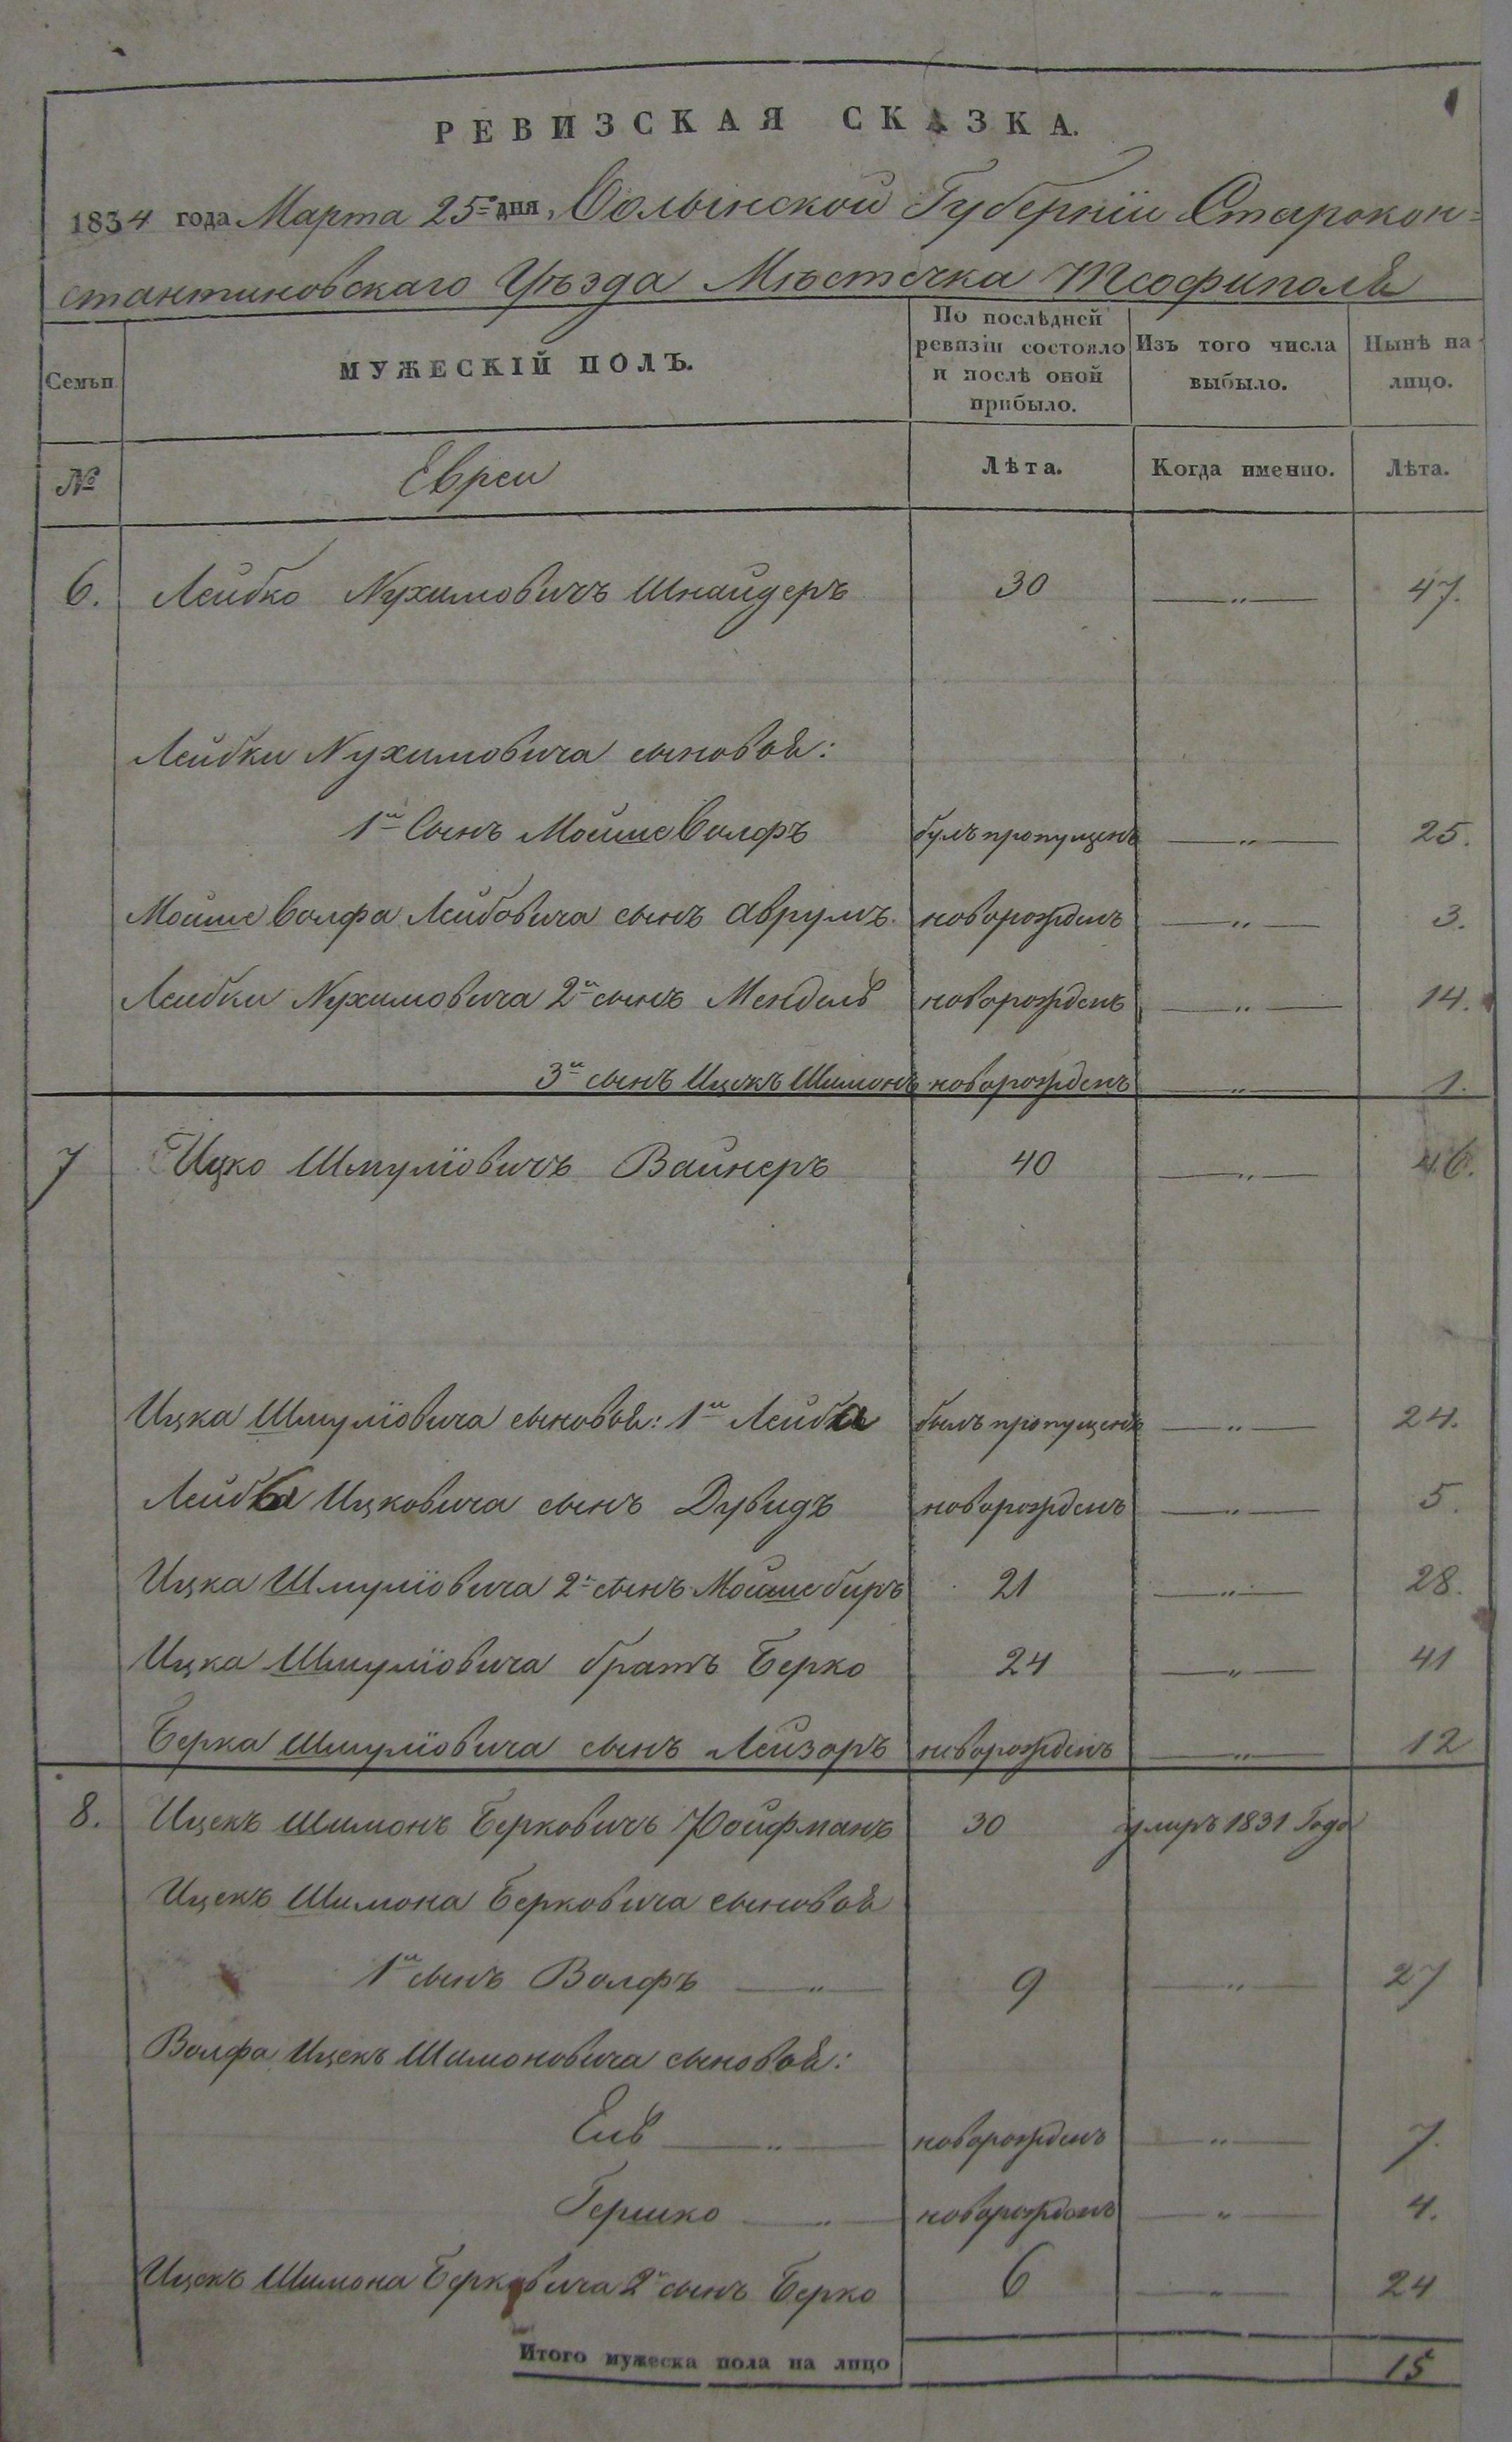 РЕВИЗСКАЯ СКАЗКА.
1834 года Марта 25 дня, Волынской Губерніи Старокон=
стантиновскаго Уѣзда Мѣстечка Теофиполя
Семьи
МУЖЕСКІЙ ПОЛЪ.
По послѣдней ревизіи состояло и послѣ оной прибыло.
Изъ того числа выбыло.
Нынѣ на лицо.
№ Евреи Лѣта. Когда именно. Лѣта.
6. Лейбко Нухимовичъ Шнайдеръ 30 —„— 47.
Лейбки Нухимовича сыновья:
1й Сынъ Мойше Волфъ булъ пропущенъ —„— 25.
Мойше Волфа Лейбовича сынъ Аврумъ новорожденъ —„— 3.
Лейбки Нухимовича 2й сынъ Мендель новорожденъ —„— 14.
3й сынъ Ицекъ Шимонъ новорожденъ —„— 1.
7 Ицко Шмуліовичъ Вайнеръ 40 —„— 46.
Ицка Шмуліовича сыновья: 1й Лейба былъ пропущенъ —„— 24.
Лейба Ицковича сынъ Дувидъ новорожденъ —„— 5.
Ицка Шмуліовича 2й сынъ Мойше биръ 21 —„— 28.
Ицка Шмуліовича братъ Берко 24 —„— 41
Берка Шмуліовича сынъ Лейзоръ новорожденъ —„— 12
8. Ицекъ Шимонъ Берковичъ Ройфманъ 30 умиръ 1831 Года
Ицекъ Шимона Берковича сыновья
1й сынъ Волфъ —„— 9 —„— 27
Волфа Ицекъ Шимоновича сыновья:
Ель —„— новорожденъ —„— 7.
Гершко —„— новорожденъ —„— 4.
Ицекъ Шимона Берковича 2й сынъ Берко 6 —„— 24
Итого мужеска пола на лицо 15